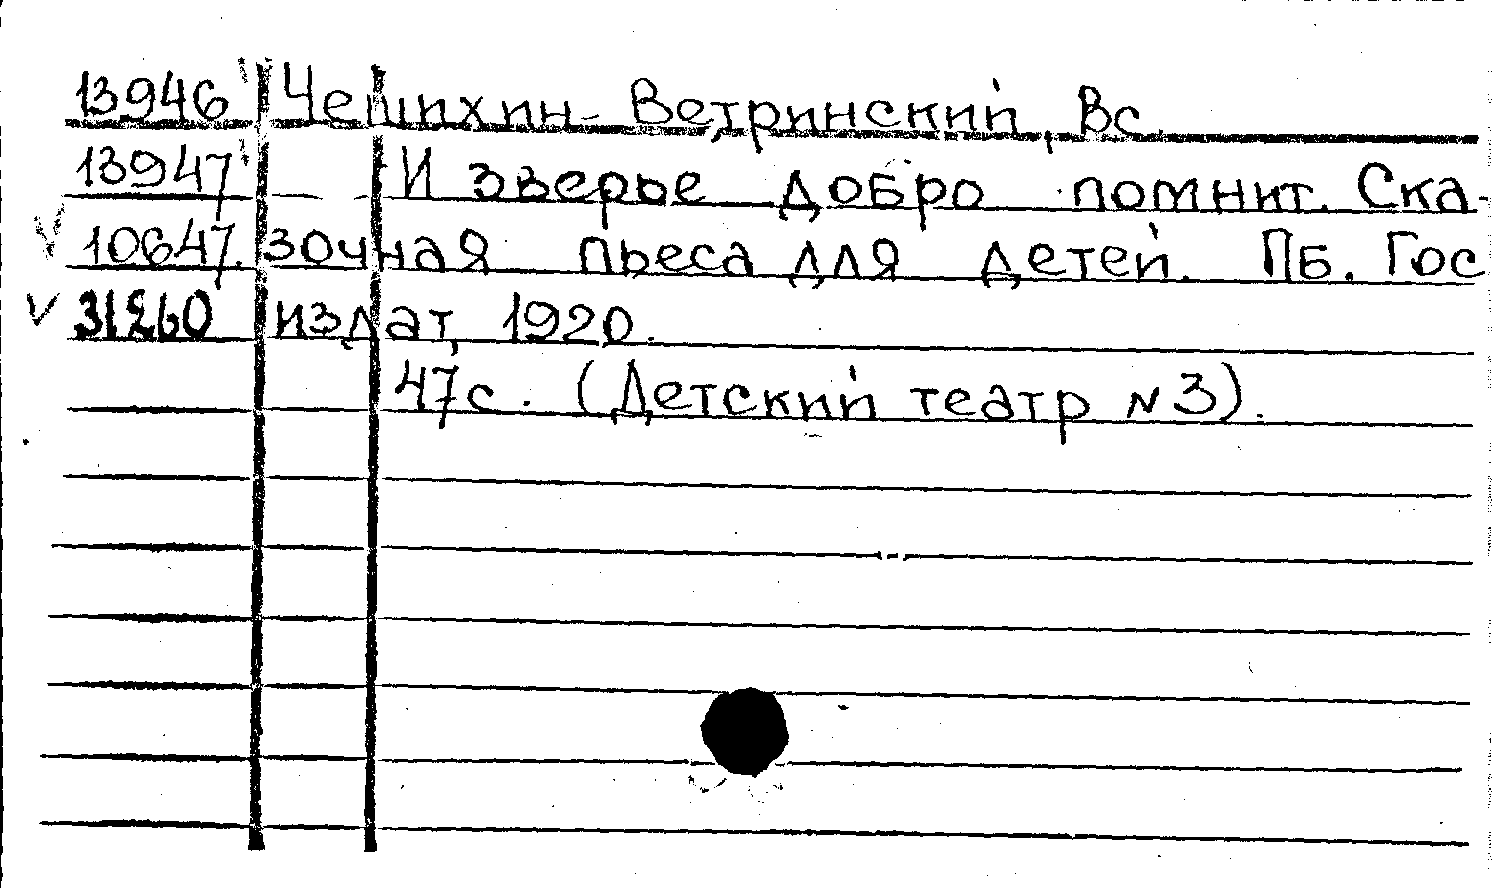 13946 Чешихин-Ветринский, Вс.
13947 И зверье добро помнит. Ска-
10647. зочная пьеса для детей. Пб. Гос
31260 издат, 1920.
47с. (Детский театр №3).